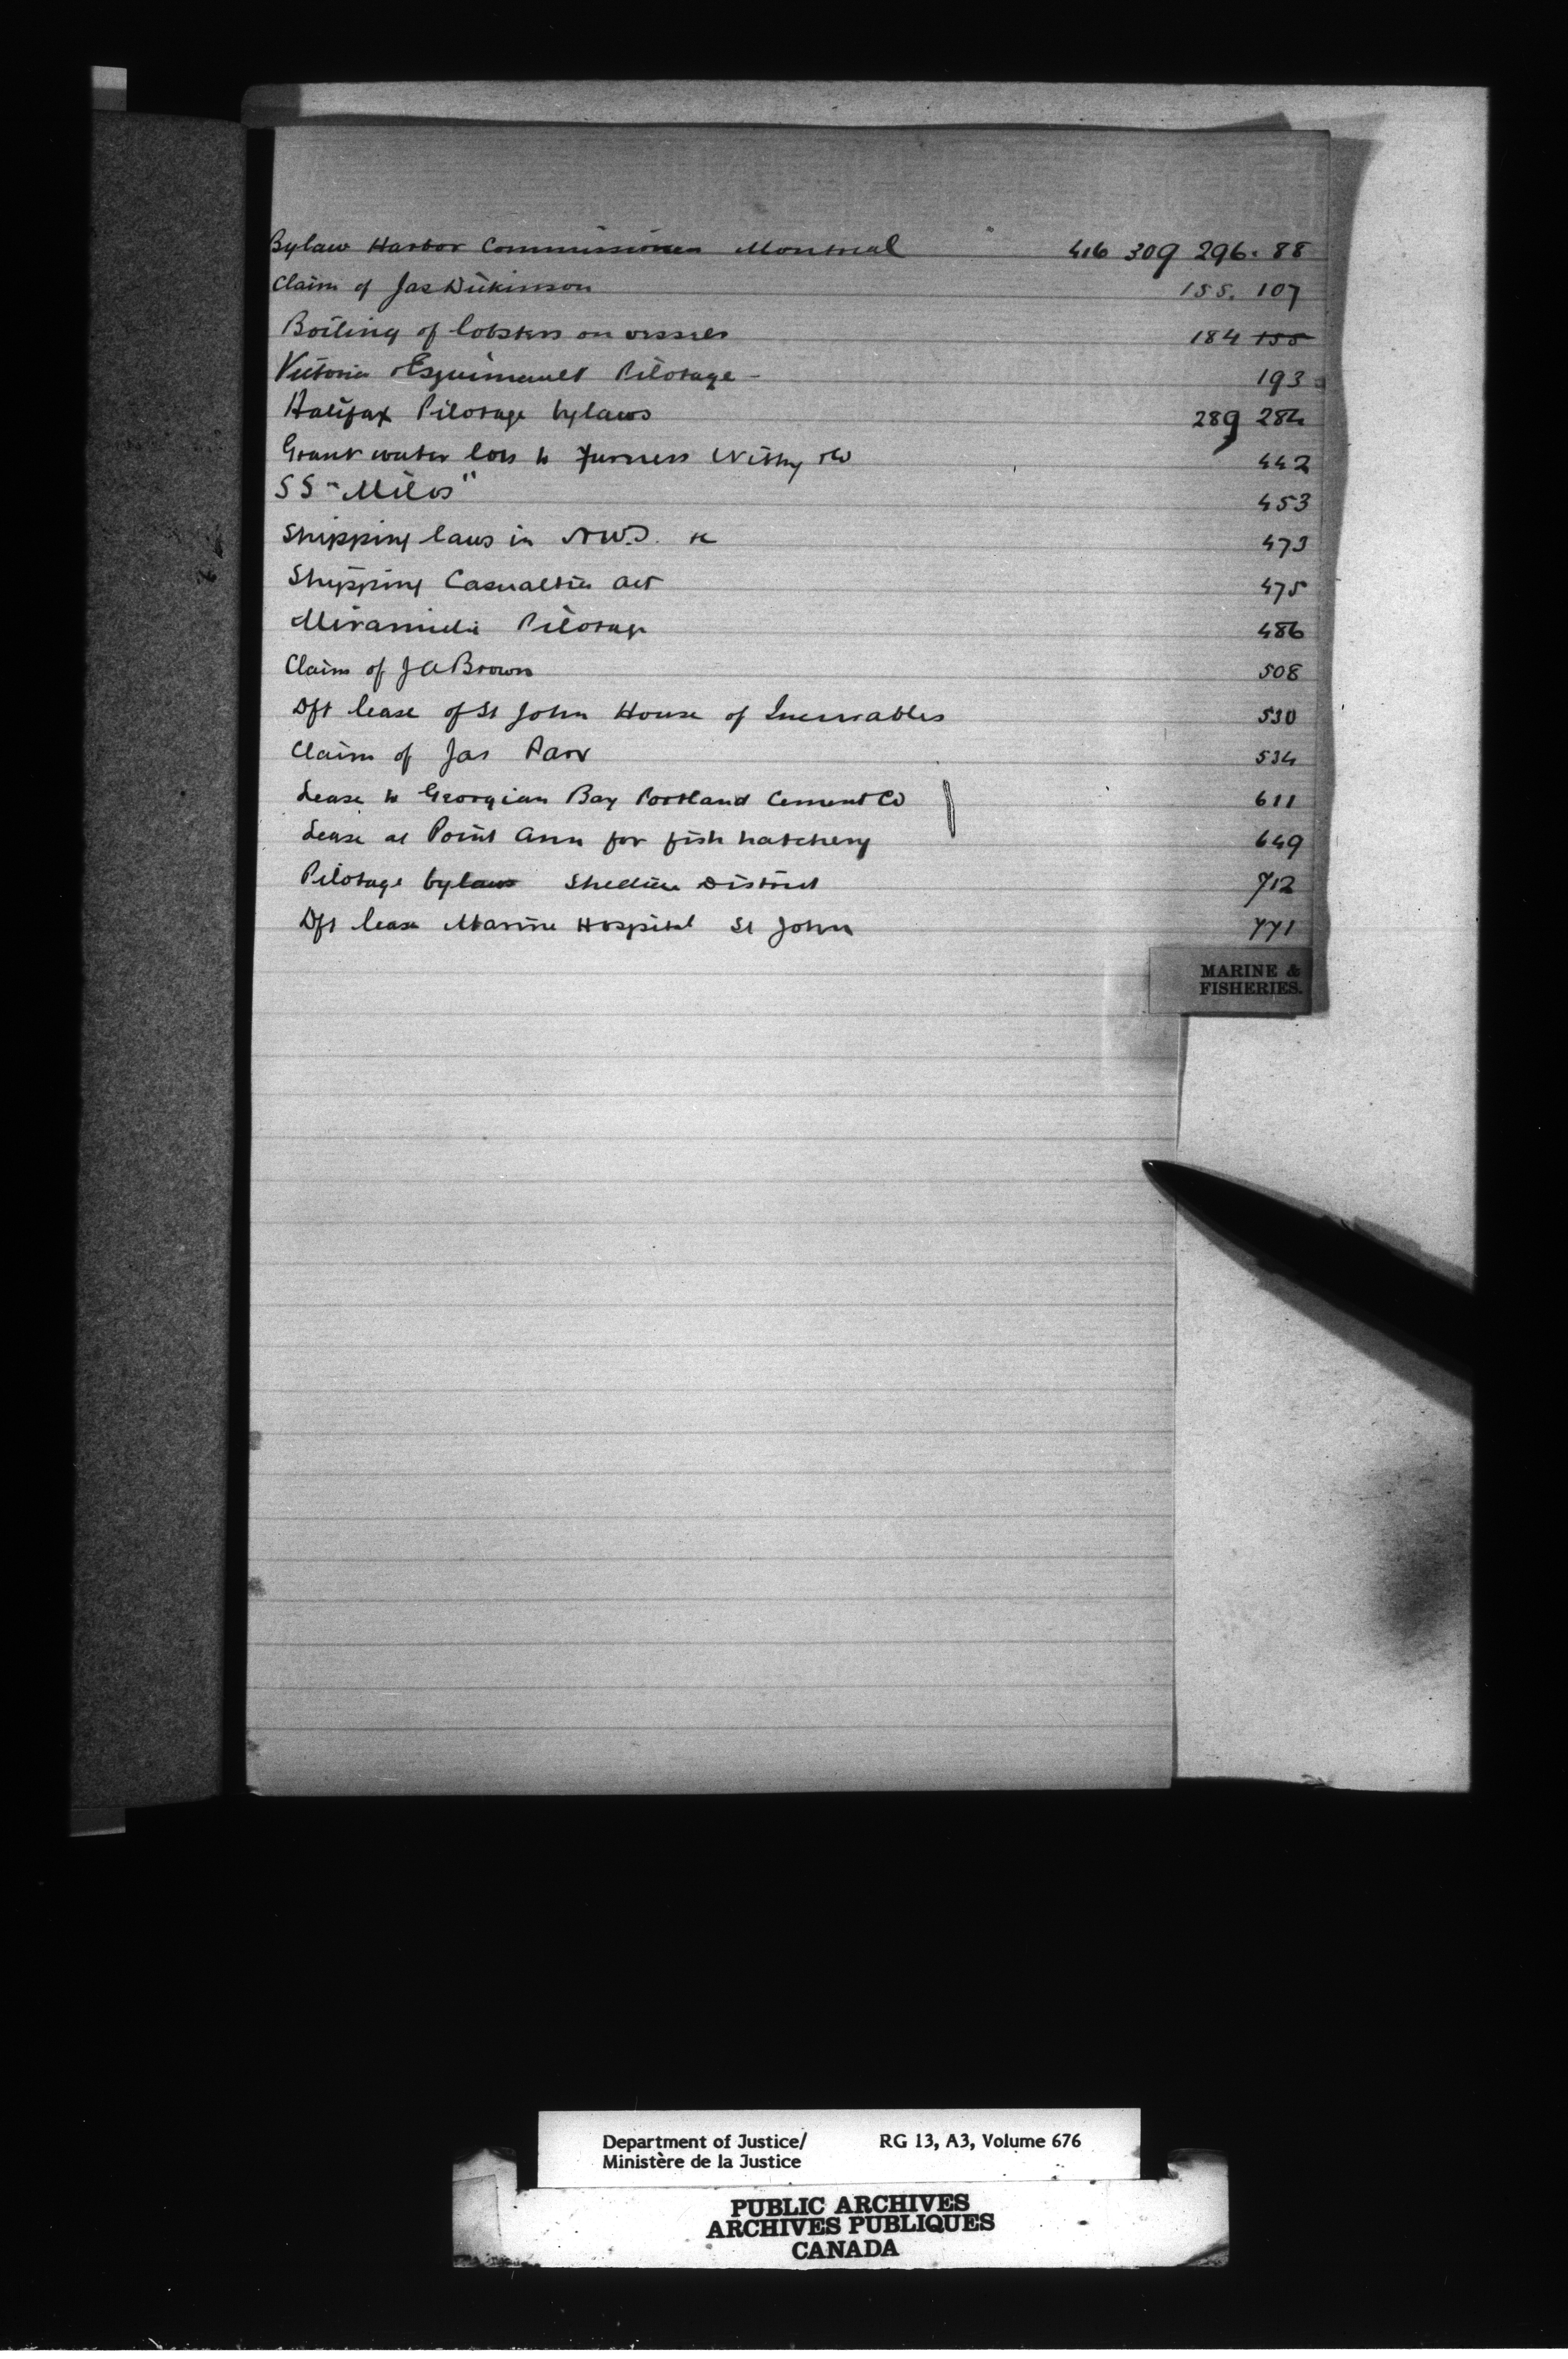 Bylaw Harbor Commissioners Montreal 416 309 296. 88
Claim of Jas Dickinson 155. 107
Boiling of lobsters on vessels 184 155
Victoria & Esquimault Pilotage - 193
Halifax Pilotage bylaws 289 284
Grant water lots to Furness Withy & Co 442
SS "Milos" 453
Shipping laws in N.W.T. &c 473
Shipping Casualties Act 475
Miramichi Pilotage 486
Claim of J A Brown 508
Dft lease of St John House of Incurables 530
Claim of Jas Parr 534
Lease to Georgian Bay Portland Cement Co 611
Lease at Point Ann for fish hatchery 649
Pilotage bylaws Shediac District 712
Dft lease Marine Hospital St John 771
MARINE &
FISHERIES.
Department of Justice/ RG 13, A3, Volume 676
Ministère de la Justice
PUBLIC ARCHIVES
ARCHIVES PUBLIQUES
CANADA